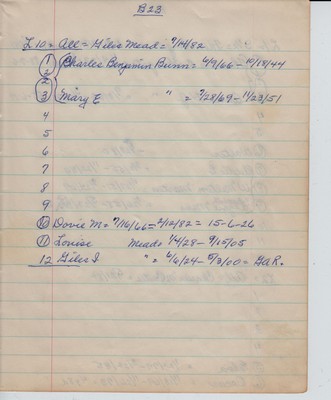 B23
L 10 = All = Giles Mead = 9/14/82
1 Charles Benjamin Bunn = 6/9/66 - 10/18/44
2
3 Mary E. " = 7/28/69 - 11/23/51
4
5
6
7
8
9
10 Dovie M = 7/16/66 = 2/12/82 = 15-6-26
11 Louise Mead = 1/4/28 - 9/15/05
12 Giles I. " = 6/6/24 - 5/3/00 = Ga R.